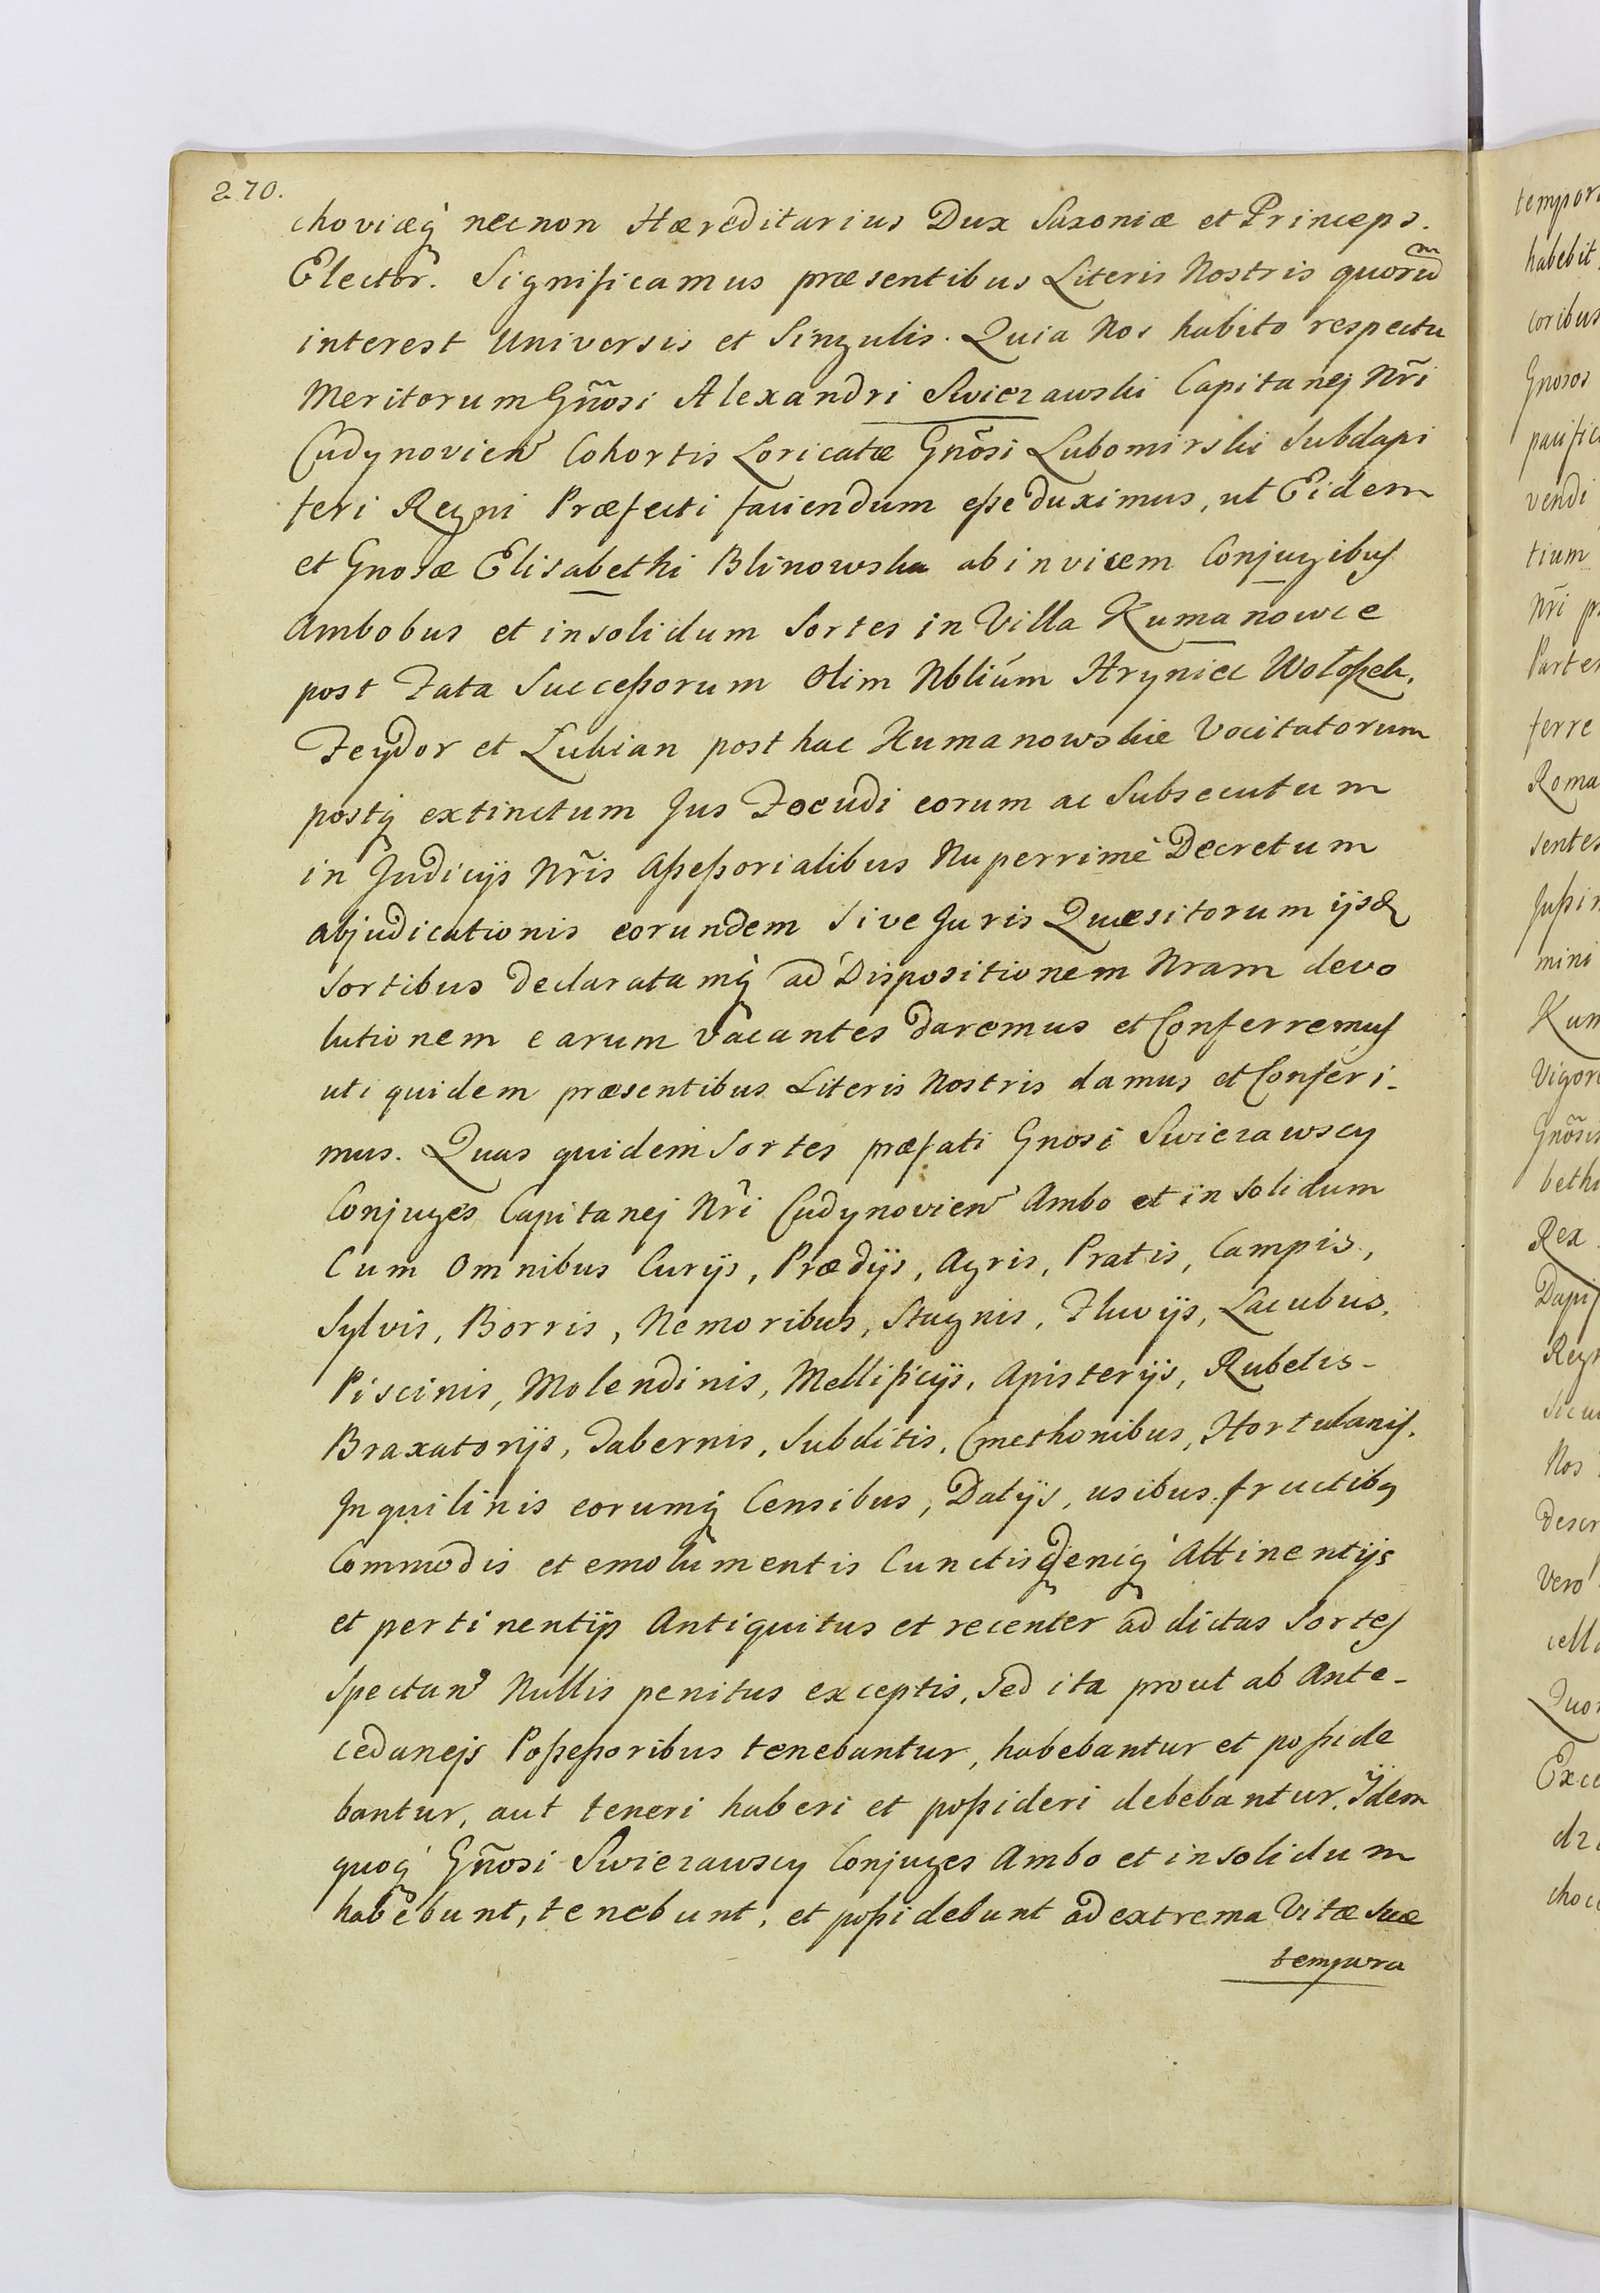 270.
choviæq̀ necnon Hæreditarius Dux Saxoniæ et Princeps.
Elector. Significamus præsentibus Literis Nostris quorũ
interest Universis et Singulis. Quia Nos habito respectu
Meritorum Gños̃i Alexandri Swierawski Capitanej Nr̃i
Cudynovien̄ Cohortis Loricatæ Gnõsi Lubomirski Subdapi
feri Regni Præfecti faciendum eße duximus, ut Eidem
et Gnosæ Elisabethi Blinowska ab invicem Conjugibus
Ambobus et insolidum Sortes in Villa Kumanowce
post Fata Succeßorum Olim Nbliúm Hryniec Wołoßek,
Feydor et Lukian post hac Kumanowskie Vocitatorum
postq̀ extinctum Jus Foeudi eorum ac Subsecutum
in Judicijs Nr̃is Aßeßorialibus Nuperrimè Decretum
abjudicationis eorundem Sive Juris Quæsitorum ijsđ
Sortibus declaratamq̀ ad Dispositionem Nram devo
lutionem earum vacantes daremus et Conferremus
uti quidem præsentibus Literis Nostris damus et Conferi-
mus. Quas quidem Sortes præfati Gnosi Swierawscy
Conjuges Capitanej Nr̃i Cudynovien̄ Ambo et in solidum
Cum Omnibus Curijs, Prædijs, Agris, Pratis, Campis,
Sylvis, Borris, Nemoribus, Stagnis, Fluvijs, Lacubus,
Piscinis, Molendinis, Mellificijs, Apisterijs, Rubetis-
Braxatorijs, Tabernis, Subditis, Cmethonibus, Hortulanis,
Inquilinis eorumq̀ Censibus, Datijs, usibus fructibq
Commodis et emolumentis Cunctisq̀ deniq̀ Attinentijs
et pertinentijs Antiquitus et recenter ad dictas Sortes
Spectan̄ Nullis penitus exceptis, Sed ita prout ab Ante-
cedanejs Poßeßoribus tenebantur, habebantur et poßide
bantur, aut teneri haberi et poßideri debebantur, Ijdem
quoq̀ Gños̃i Swierawscy Conjuges Ambo et insolidum
habebunt, tenebunt, et poßidebunt ad extrema Vitæ Suæ
tempora
tempora
habebit
coribus
Gnosos
pacific
vendi
tium
Nr̃i
Parte
ferre
Roma
sentes
mini
Kum
Vigore
Gnõsis
beth
Rex
Dapif
Regn
Nos
descr
Vero
cell
Quo
Exce
choc